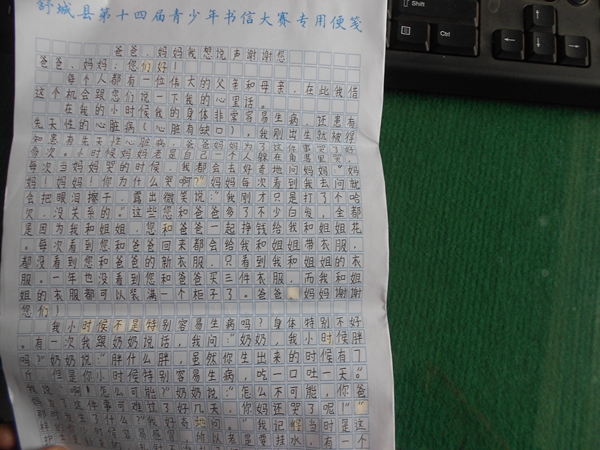 舒城县第十四届青少年书信大赛专用便笺
爸爸、妈妈我想说声谢谢您
爸爸、妈妈，您们好！
每个人都有一位伟大的父亲和母亲，在此我借
这个机会跟您们说一下我的心里话。
在我的小时候我的身体非常容易生病，还患有
先天性的心脏病（心脏有缺口），我刚出生就被得
知患有先天性心脏病，爸爸妈妈为了这件事哭了好
多次。小时候妈妈老是自己一个人躲在角落里哭，
每次当妈妈哭的时候，我都会去好奇地问妈妈“妈
妈！妈妈！你为什么哭啊？”妈妈每次看到我去问就
会把眼泪擦干，露出微笑说：“我刚才只是打了个哈
欠，没关系的。”这些您和爸爸多了不少白发，全都
是因为我和姐姐，您和爸爸一起挣钱给我和姐姐花
。每次看到您和爸爸回来都会给我和姐姐带衣服，
都没看到您和爸爸的新衣服，只看到我和姐姐的衣
服。一年也没看到您和爸爸买三件衣服，而我和姐
姐的衣服都可以装满一个柜子了。爸爸、妈妈谢谢
您们！
我小时候不是特别容易生病吗？身体特别不好
。有一次我跟奶奶说话，我问：“奶奶，我小时候胖
吗？”奶奶说：“胖什么胖，虽然你生出来的时候有
斤，但是你小时候特别容易生病，吃一口吐一天。”
我说：“啊！怎么可能？”奶奶说：“怎么不可能，你爸
这件事可难过了好几天，你妈还哭了呢！”
生了什么？”我好奇地问。“我记得当时是这
容易感冒，所以老是要挂水，有一个